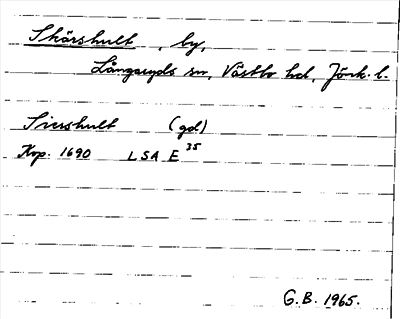 Skärshult, by,
Långaryds sn, Västbo hd, Jönk. l.
Siershult (gd)
Kop. 1690 LSA E 35
G.B. 1965.